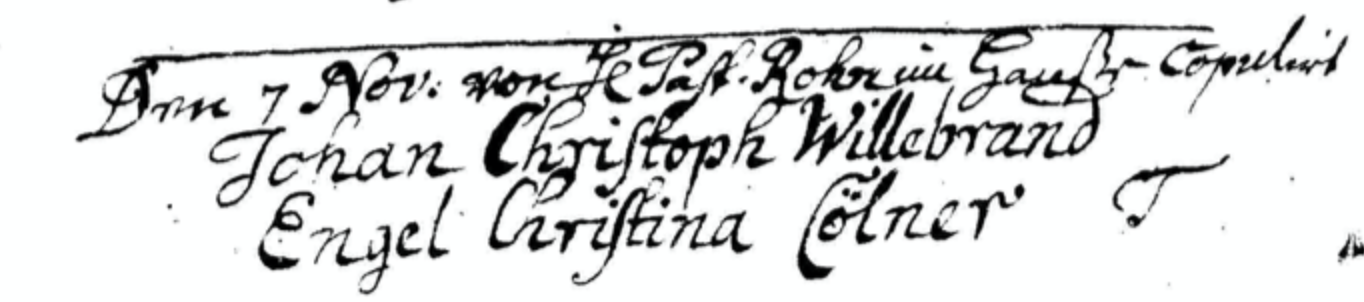 Den 7 Nov: von H Past. Rohr im Hauße Copulirt
Johan Christoph Willebrand
Engel Christina Cölner